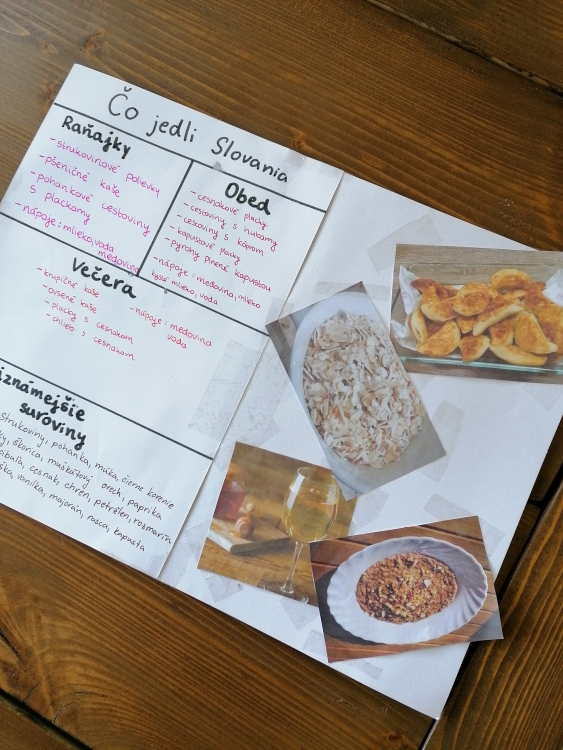 Čo jedli Slovania
Raňajky
-strukovinové polievky
-pšeničné kaše
-pohankové cestoviny
s plackamy
-nápoje: mlieko, voda
medovina
Obed
-cesnakové placky
-cestoviny s hubamy
-cestoviny s kôprom
-kapustové placky
-pyrohy plnené kapustou
-nápoje: medovina, mlieko
kyslé mlieko, voda
Večera
-krupičné kaše
-ovsené kaše
-placky s cesnakom
-chlieb s cesnakom
-nápoje: medovina
voda
známejšie
suroviny
Strukoviny, pohanka, múka, čierne korenie
škorica, muškátový orech, paprika
cibuľa, cesnak, chren, petržlen, rozmarín
vanilka, majorán, rasca, kapusta